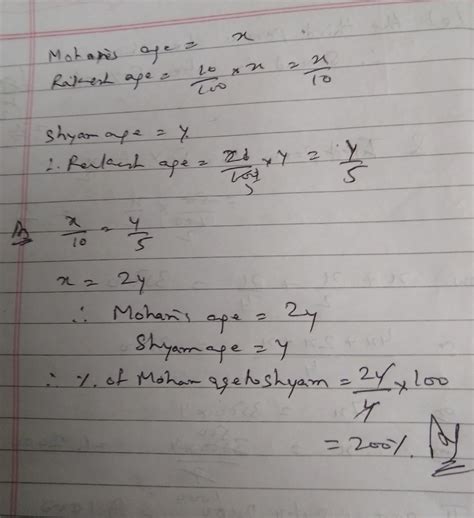 Mohan's age = x
Rakesh age = 10/100 * x = x/10
Shyam age = y
∴ Rakesh age = 20/100 * y = y/5
x/10 = y/5
x = 2y
∴ Mohan's age = 2y
Shyam age = y
∴ % of Mohan age to shyam = 2y/y * 100
= 200%.